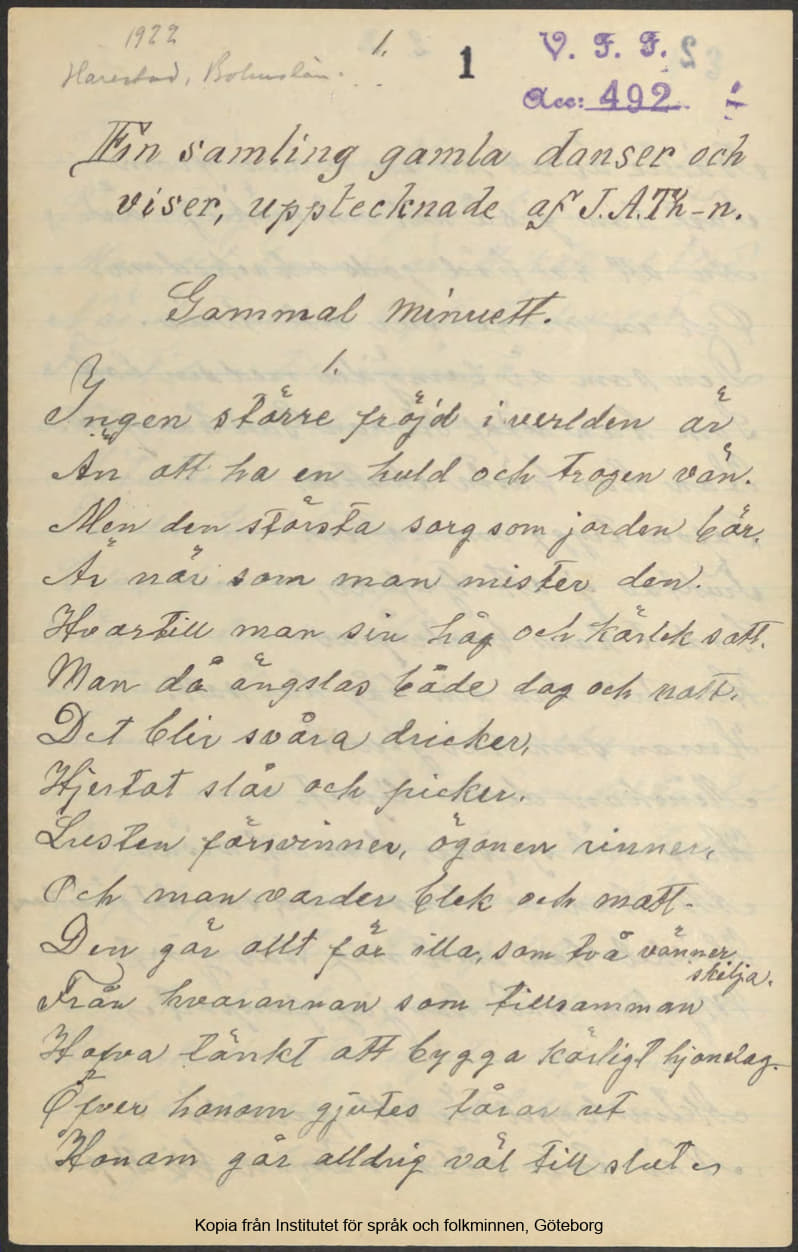 1922
Harestad, Bohuslän.
1.
1
V. F. F.
Acc: 492
En samling gamla danser och
viser, upptecknade af J.A.Th-n.
Gammal minuett.
1.
Ingen större fröjd i verlden är
Än att ha en huld och trogen vän.
Men den största sorg som jorden bär.
Är när som man mister den.
Hvartill man sin håg och kärlek satt.
Man då ängslas både dag och natt.
Det blir svåra dricker,
Hjertat slår och picker.
Lusten försvinner, ögonen rinner,
Och man varder blek och matt.
Den går allt för illa, som två vänner
skilja.
Från hvarannan som tillsamman
Hafva tänkt att bygga kärligt hjonelag.
Öfver honom gjutes tårar ut
Honom går alldrig väl till slut
Kopia från Institutet för språk och folkminnen, Göteborg